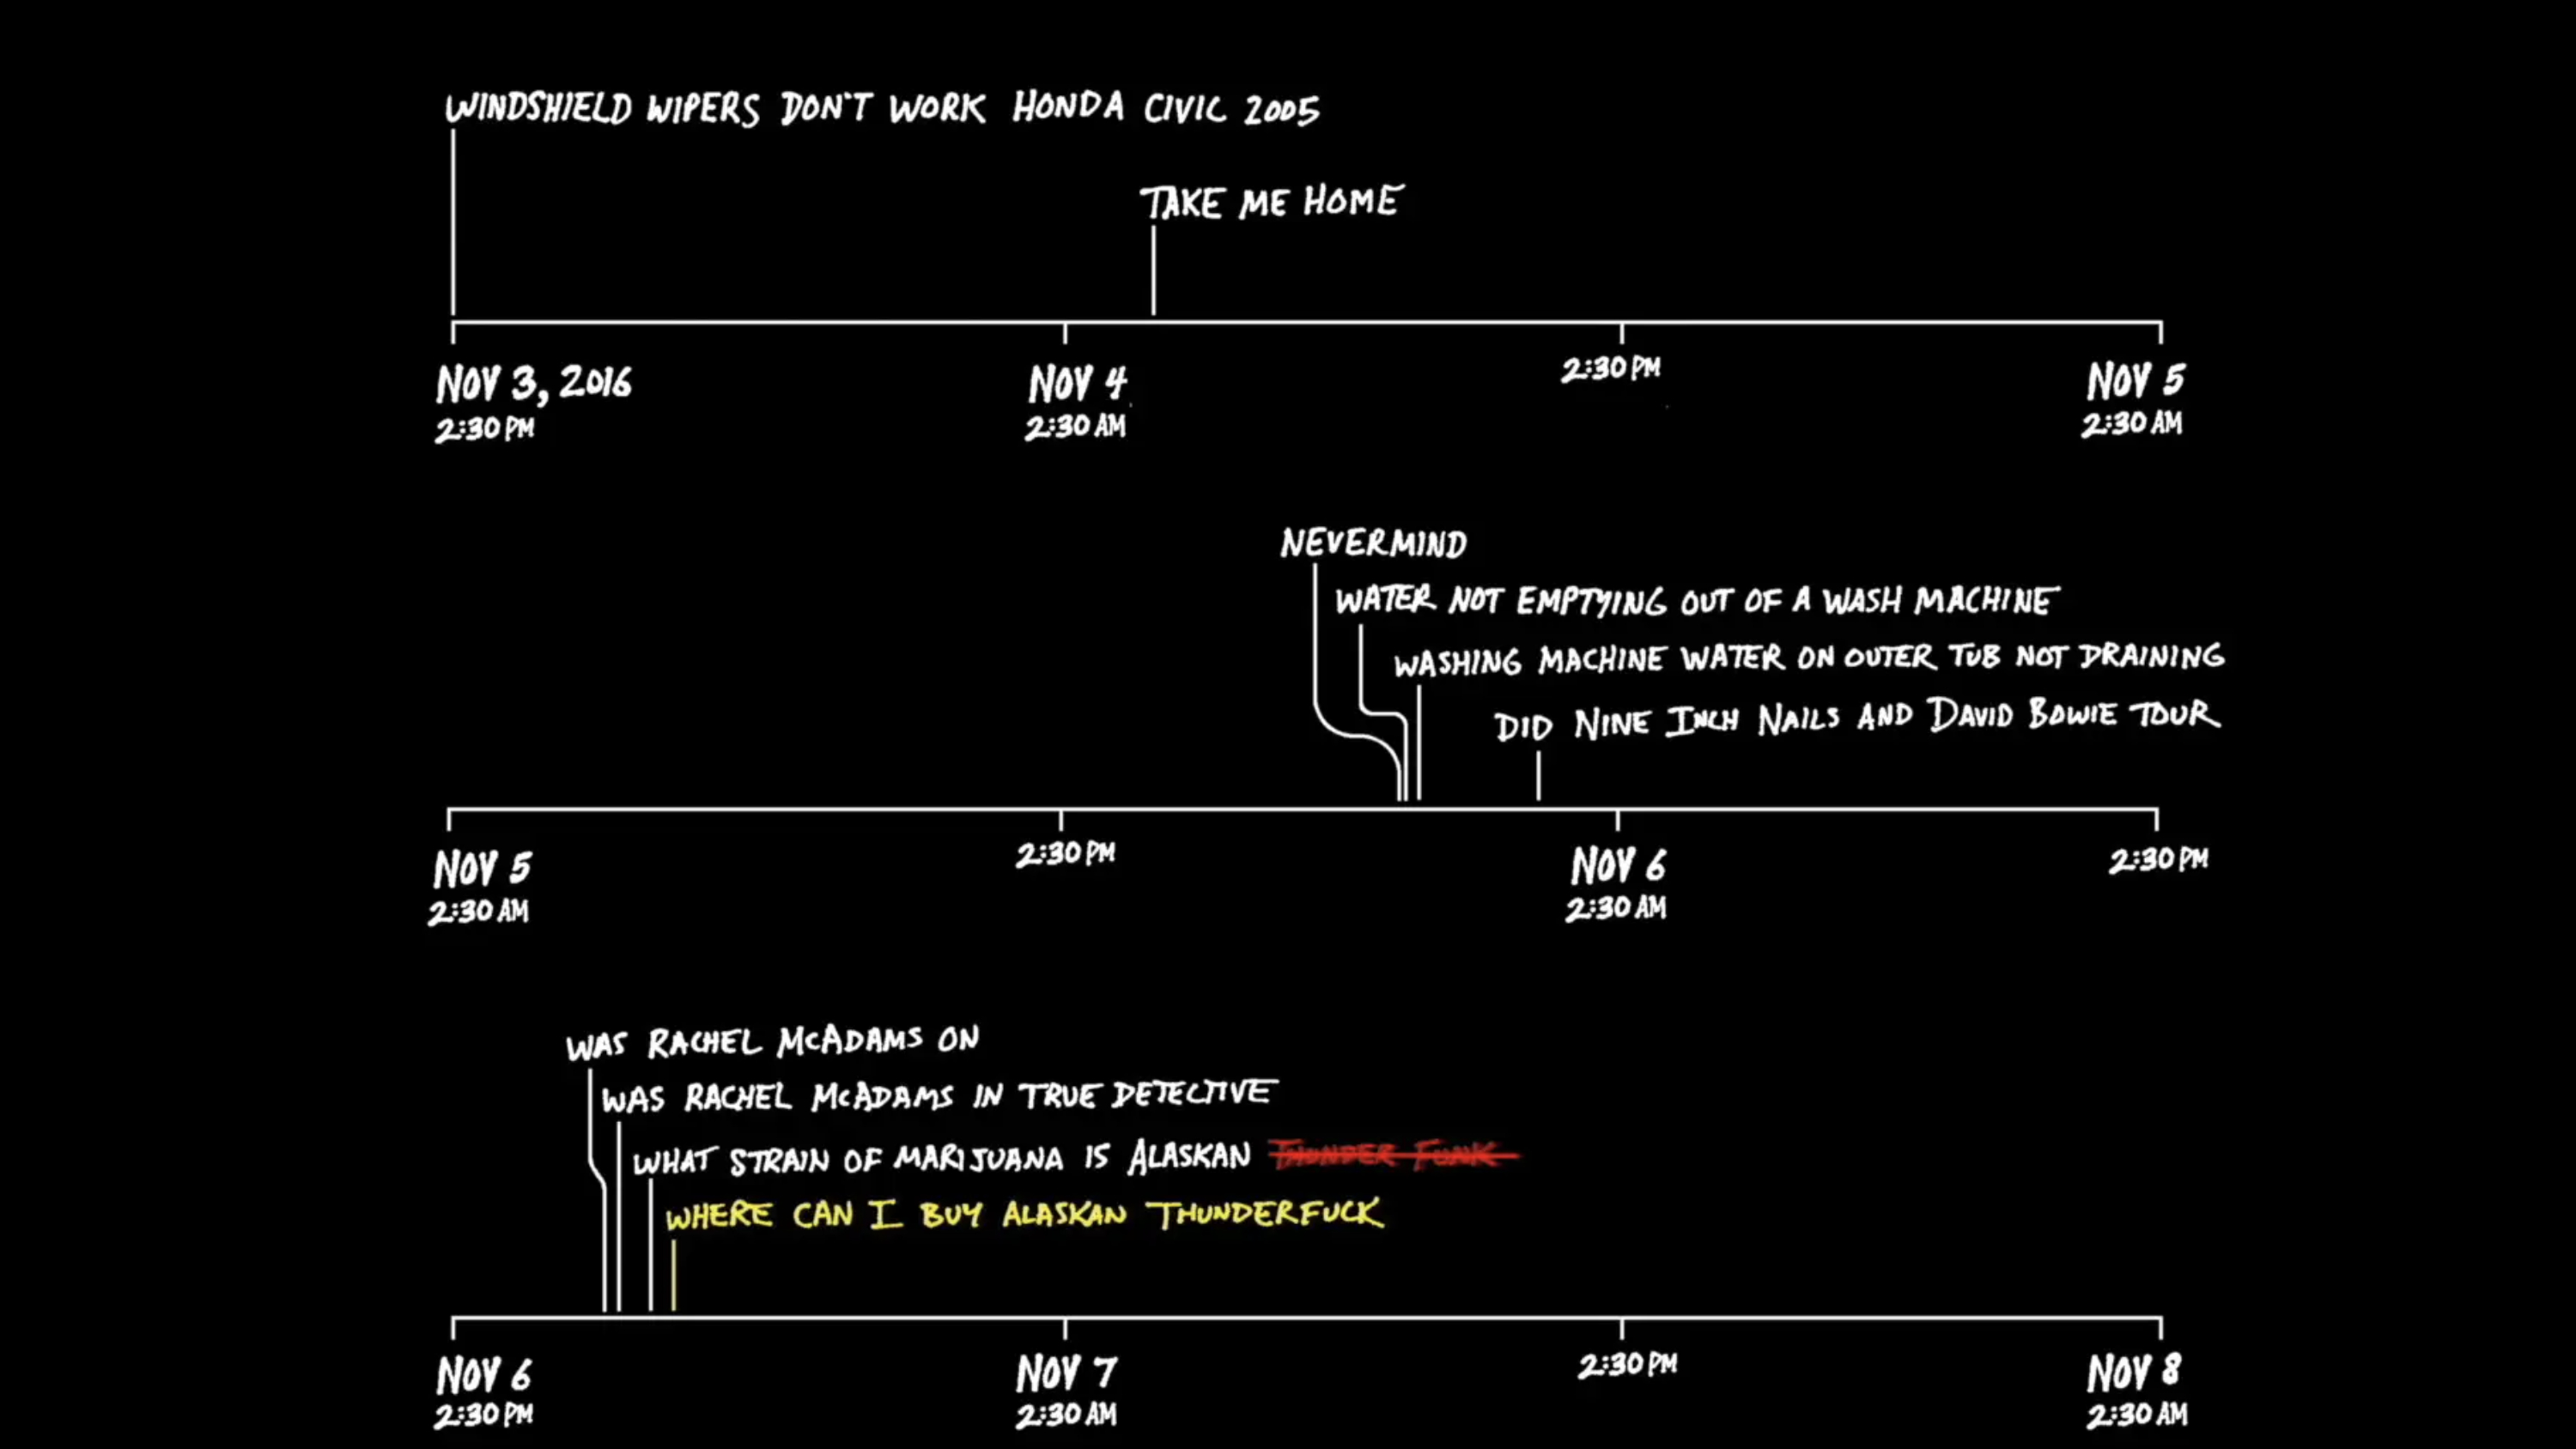 WINDSHIELD WIPERS DON'T WORK HONDA CIVIC 2005
TAKE ME HOME
NOV 3, 2016
2:30 PM
NOV 4
2:30 AM
2:30 PM
NOV 5
2:30 AM
NEVERMIND
WATER NOT EMPTYING OUT OF A WASH MACHINE
WASHING MACHINE WATER ON OUTER TUB NOT DRAINING
DID NINE INCH NAILS AND DAVID BOWIE TOUR
NOV 5
2:30 AM
2:30 PM
NOV 6
2:30 AM
2:30 PM
WAS RACHEL MCADAMS ON
WAS RACHEL MCADAMS IN TRUE DETECTIVE
WHAT STRAIN OF MARIJUANA IS ALASKAN THUNDER FUNK
WHERE CAN I BUY ALASKAN THUNDERFUCK
NOV 6
2:30 PM
NOV 7
2:30 AM
2:30 PM
NOV 8
2:30 AM